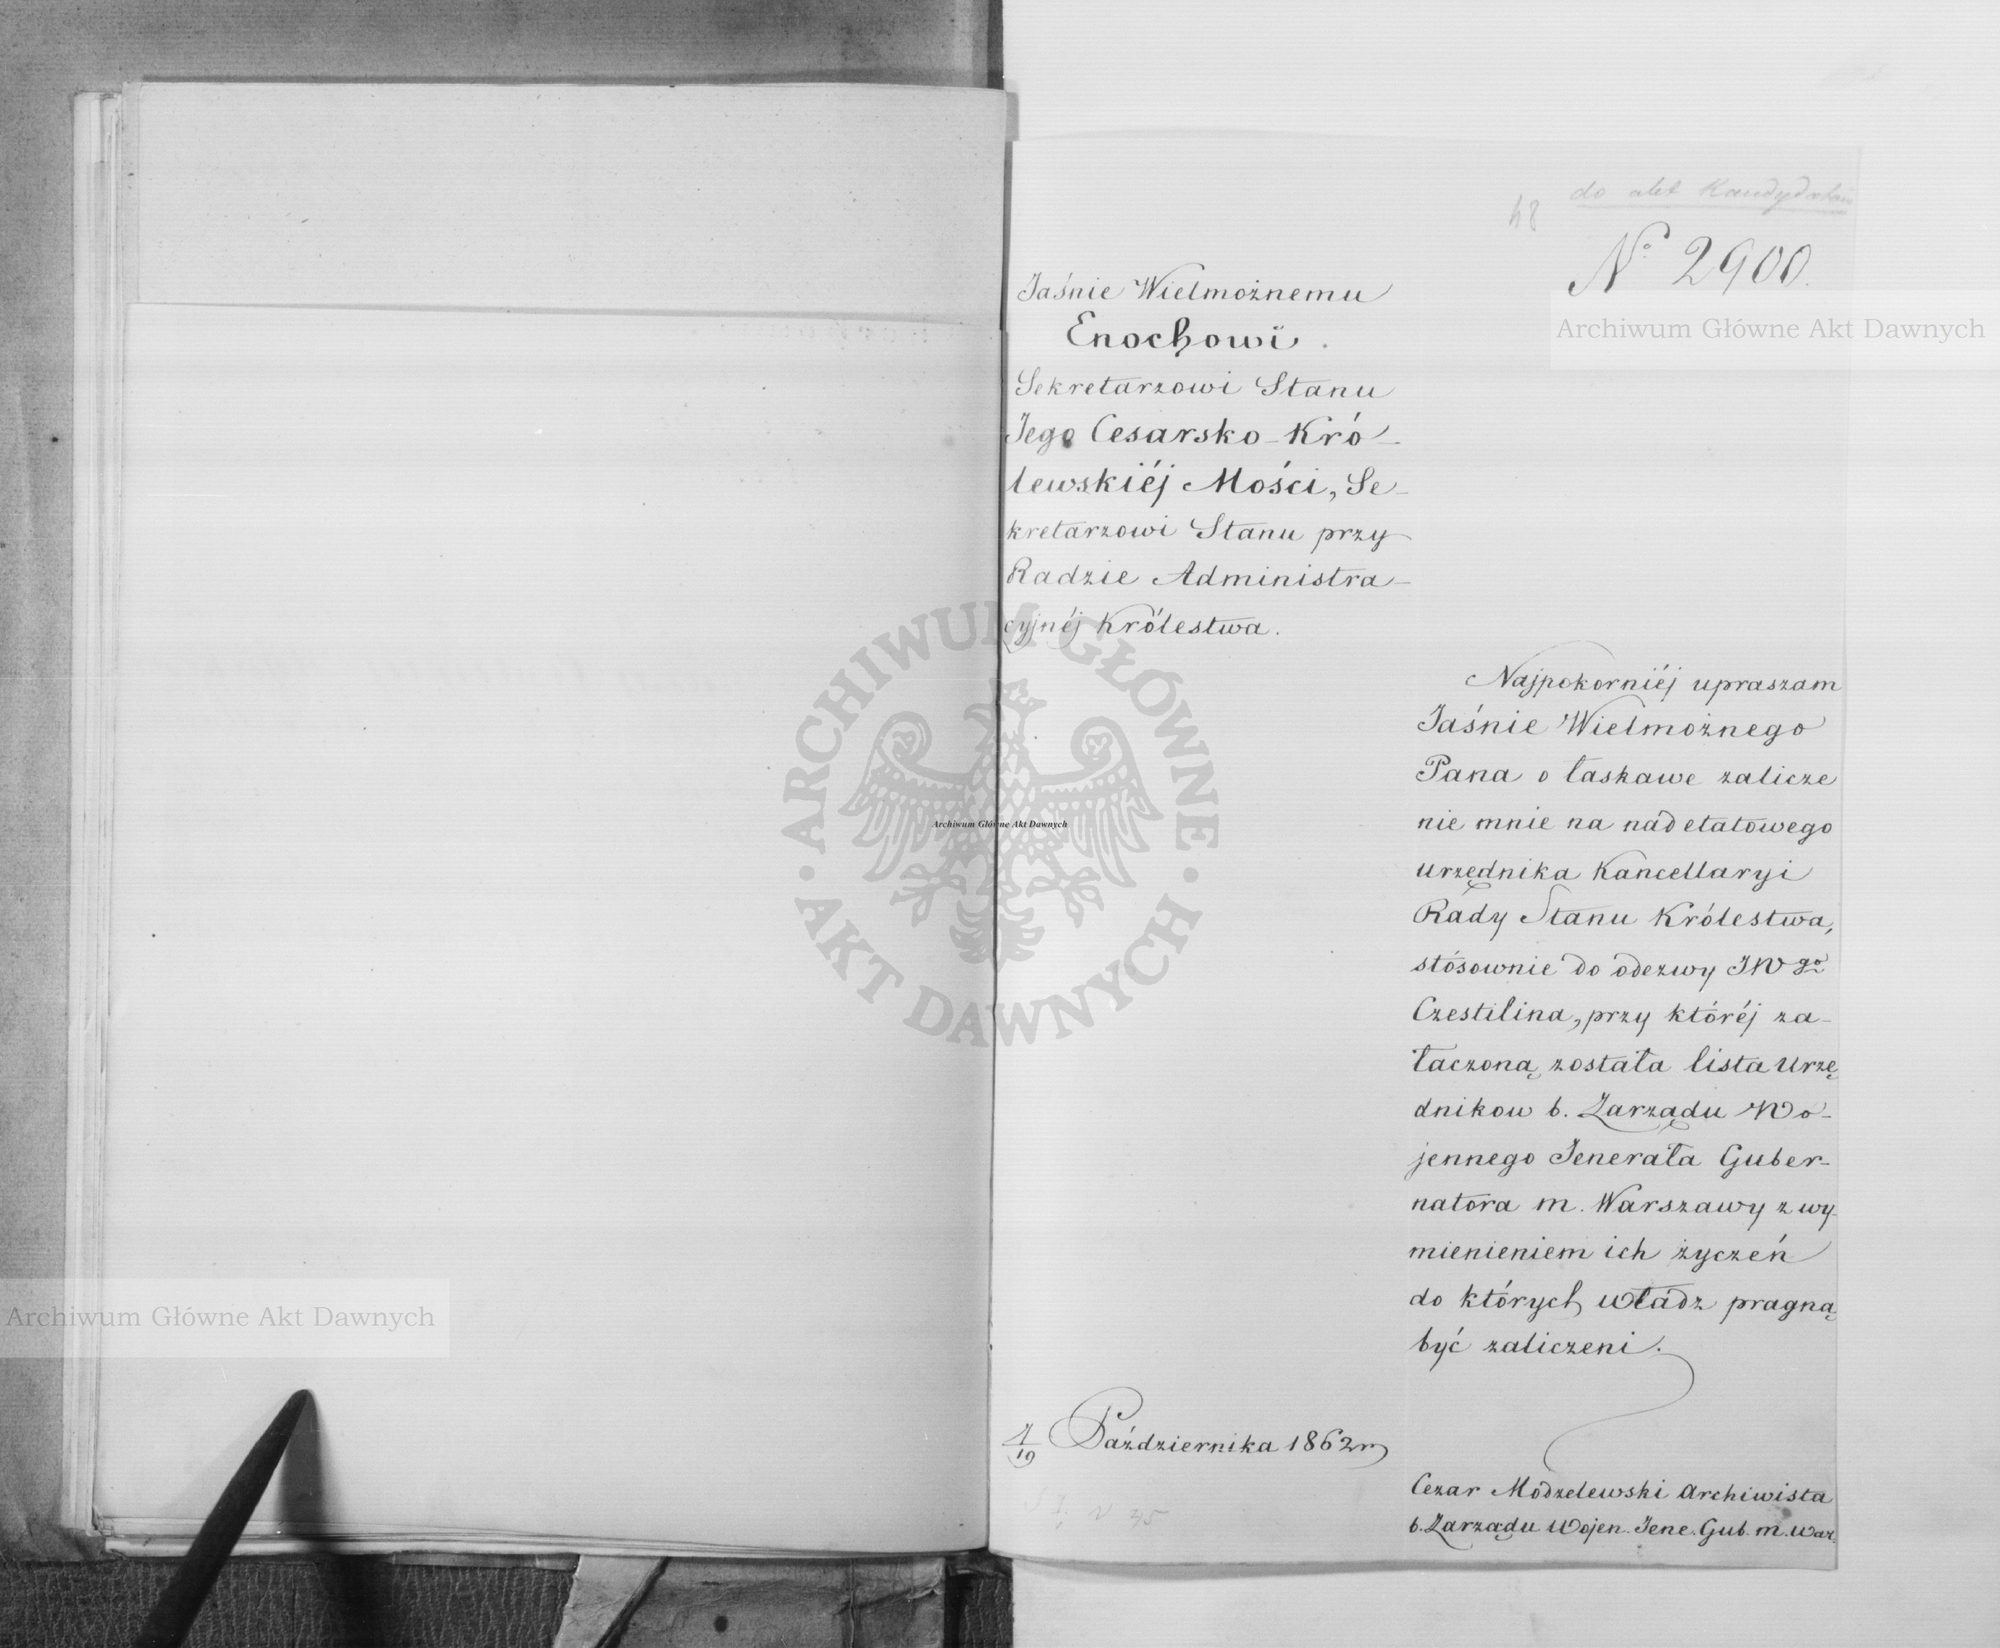 do akt Kandydatów
48
No 2900.
Jaśnie Wielmożnemu
Enochowi.
Sekretarzowi Stanu
Jego Cesarsko-Kró-
lewskiéj Mości, Se-
kretarzowi Stanu przy
Radzie Administra-
cyjnéj Królestwa.
Najpokorniéj upraszam
Jaśnie Wielmożnego
Pana o łaskawe zalicze
nie mnie na nadetatowego
urzędnika Kancellaryi
Rady Stanu Królestwa,
stósownie do odezwy JWgo
Czestilina, przy któréj za-
łączoną została lista Urzę
dnikow b. Zarządu Wo-
jennego Jenerała Guber-
natora m. Warszawy z wy-
mienieniem ich życzeń
do których władz pragną
być zaliczeni.
7/19 Października 1862 r
Cezar Modzelewski Archiwista
b. Zarządu Wojen. Jene. Gub. m. War.
Archiwum Główne Akt Dawnych
Archiwum Główne Akt Dawnych
Archiwum Główne Akt Dawnych
ARCHIWUM GŁÓWNE
AKT DAWNYCH